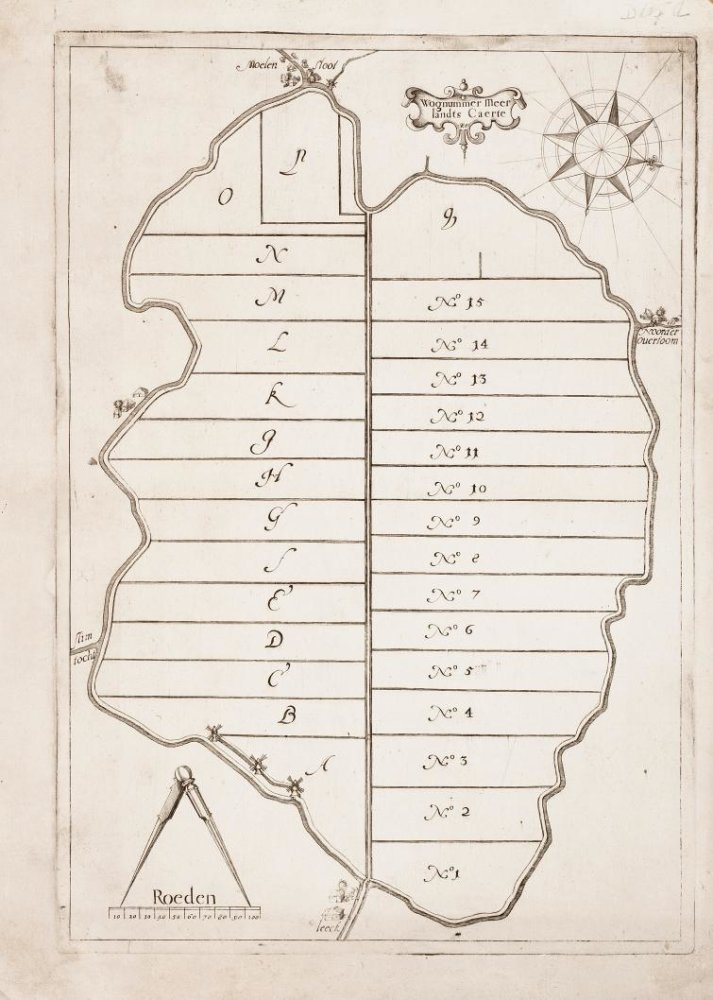 Moelen Sloot
Wognummer Meer
landts Caerte
P
O
Q
N
M
No 15
L
No 14
Noorder
Overtoom
K
No 13
No 12
g
No 11
H
No 10
G
No 9
No 8
E
No 7
D
No 6
tocht
C
No 5
B
No 4
A
No 3
No 2
No 1
Roeden
10 20 30 40 50 60 70 80 90 100
leeck